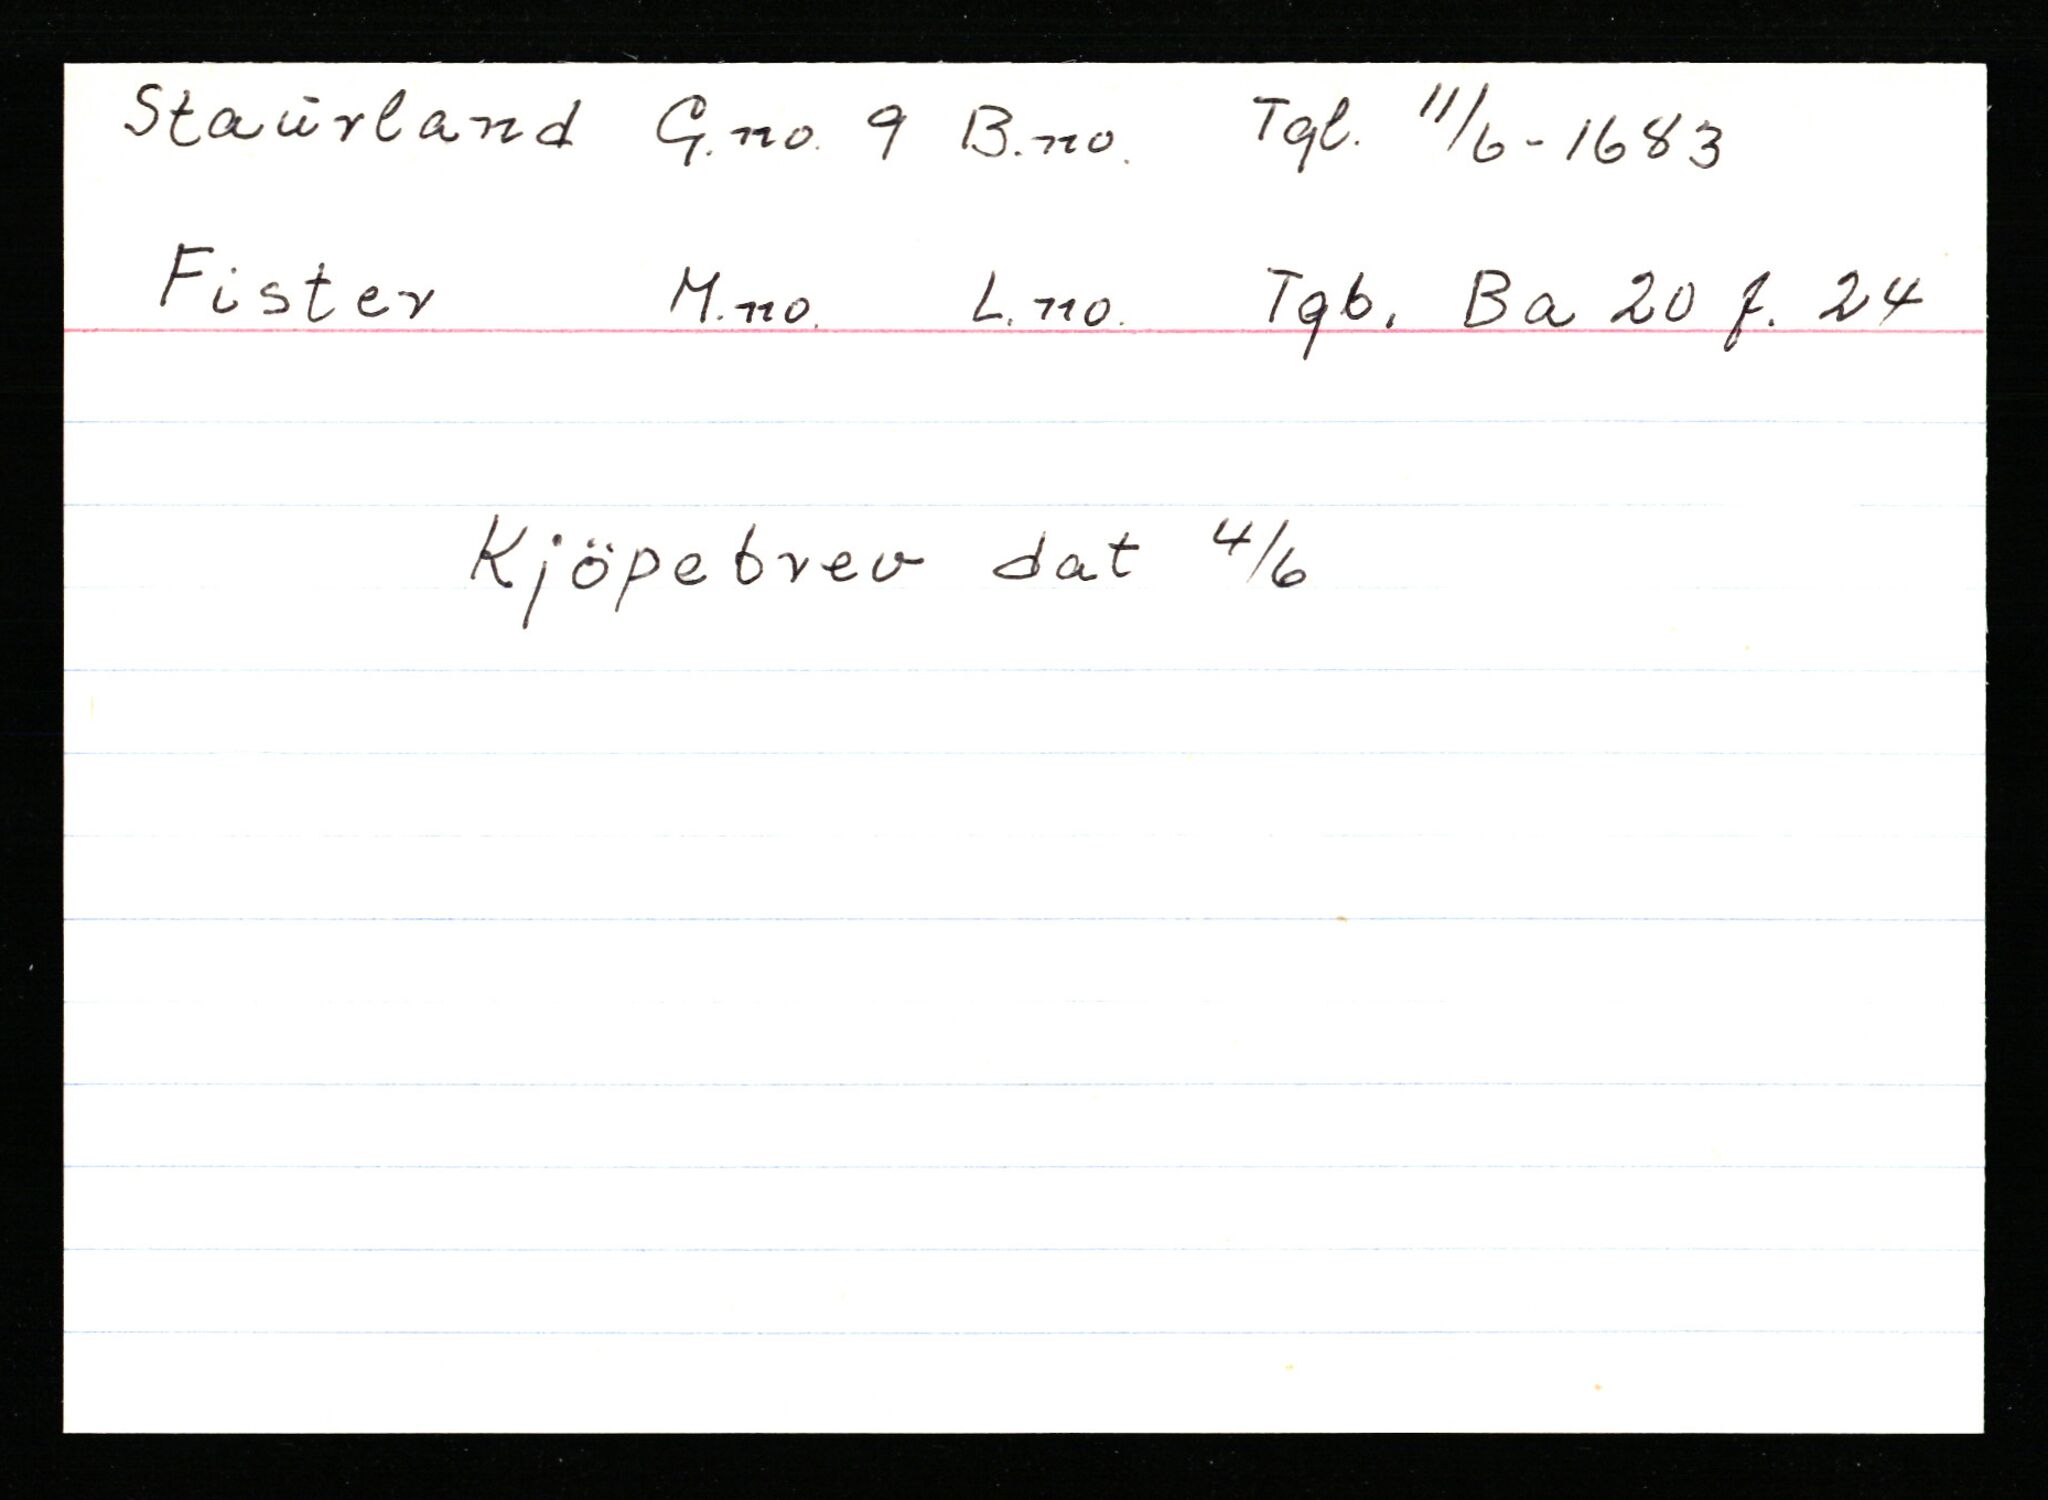 Staurland G.no. 9 B.no. Tgl. 11/6-1683
Fister M.no. L.no. Tgb. Ba 20 f. 24
Kjöpebrev dat 4/6